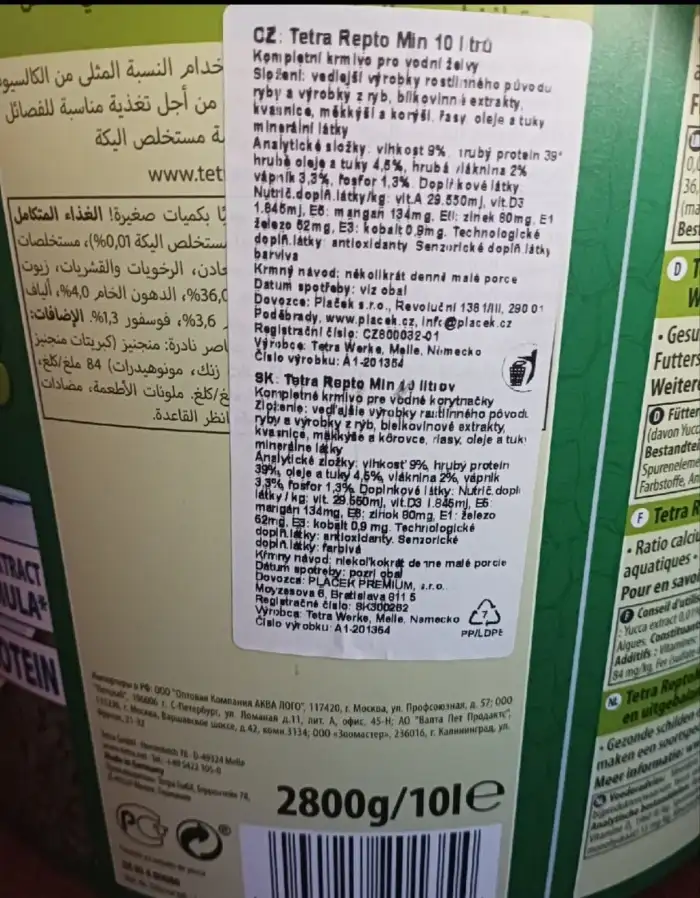 خدام النسبة المثلى من الكالسيو
من أجل تغذية مناسبة للفصائل
ة مستخلص اليكة
www.tet
ًا بكميات صغيرة! الغذاء المتكامل
مستخلص اليكة 0,01%)، مستخلصات
عادن، الرخويات والقشريات، زيوت
36,0%، الدهون الخام 4,0%، ألياف
3,6%، فوسفور 1,3%. الإضافات:
اصر نادرة: منجنيز (كبريتات منجنيز
زنك، مونوهيدرات) 84 ملغ/كلغ،
غ/كلغ. ملونات الأطعمة، مضادات
انظر القاعدة.
CZ: Tetra Repto Min 10 l trů
Kompletní krmivo pro vodní želvy
Složení: vedlejší výrobky rostlinného původu
ryby a výrobky z ryb, bílkovinné extrakty,
kvasnice, měkkýši a korýši, řasy, oleje a tuky
minerální látky
Analytické složky: vlhkost 9%, hrubý protein 39%
hrubé oleje a tuky 4,5%, hrubá vláknina 2%
vápník 3,3%, fosfor 1,3%. Doplňkové látky
Nutrič.doplň.látky/kg: vit.A 29.550mj, vit.D3
1.845mj, E5: mangan 134mg, E6: zinek 80mg, E1
železo 52mg, E3: kobalt 0,9mg. Technologické
doplň.látky: antioxidanty Senzorické doplň.látky
barviva
Krmný návod: několikrát denně malé porce
Datum spotřeby: viz obal
Dovozce: Plaček s.r.o., Revoluční 1381/III, 290 01
Poděbrady, www.placek.cz, info@placek.cz
Registrační číslo: CZ800032-01
Výrobce: Tetra Werke, Melle, Německo
Číslo výrobku: A1-201354
SK: Tetra Repto Min 10 litrov
Kompletné krmivo pre vodné korytnačky
Zloženie: vedľajšie výrobky rastlinného pôvodu
ryby a výrobky z rýb, bielkovinové extrakty,
kvasnice, mäkkýše a kôrovce, riasy, oleje a tuky
minerálne látky
Analytické zložky: vlhkosť 9%, hrubý proteín
39%, oleje a tuky 4,5%, vláknina 2%, vápnik
3,3%, fosfor 1,3%. Doplnkové látky: Nutrič.dopl
látky/kg: vit. 29.550mj, vit.D3 1.845mj, E5:
mangán 134mg, E6: zinok 80mg, E1: železo
52mg, E3: kobalt 0,9 mg. Technologické
doplň.látky: antioxidanty. Senzorické
doplň.látky: farbivá
Kŕmny návod: niekoľkokrát denne malé porcie
Dátum spotreby: pozri obal
Dovozca: PLAČEK PREMIUM, s.r.o.
Moyzesova 6, Bratislava 811 5
Registračné číslo: SK300262
Výrobca: Tetra Werke, Melle, Nemecko
Číslo výrobku: A1-201354
7
PP/LDPE
TRACT
MULA*
OTEIN
Импортеры в РФ: ООО "Оптовая Компания АКВА ЛОГО", 117420, г. Москва, ул. Профсоюзная, д. 57; ООО
г. С-Петербург, ул. Ломаная д.11, лит. А, офис. 45-Н; АО "Валта Пет Продактс",
г. Москва, Варшавское шоссе, д.42, комн.3134; ООО «Зоомастер», 236016, г. Калининград, ул.
Made in Germany
2800g/10l℮
D T
W
• Gesu
Futters
Weitere
D Fütter
(davon Yucc
Bestandtei
Spurenelem
Farbstoffe, An
F Tetra R
• Ratio calciu
aquatiques •
Pour en savo
F Conseil d'utilis
: Yucca extract 0,0
Algues, Constituant
Additifs : Vitamines
84 mg/kg, Fer (sulfate
NL Tetra Reptol
en uitgebal
• Gezonde schildp
maken een soortgesc
Meer informatie: